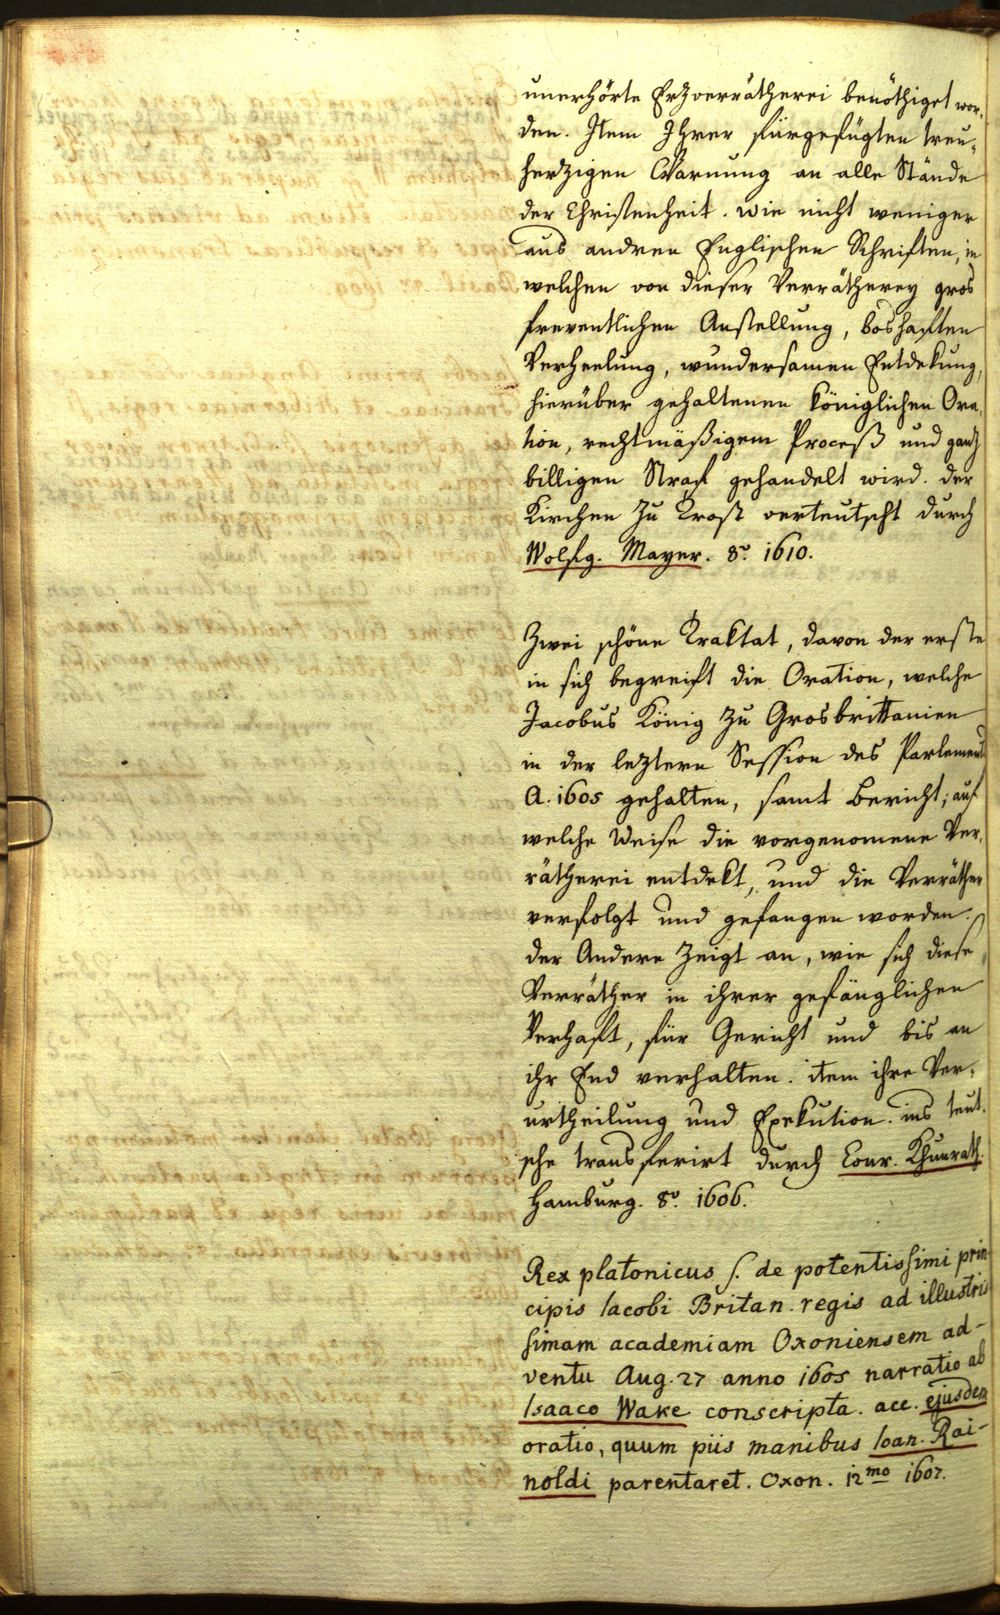 unerhörte Erzverrätherei benöthiget wor-
den. Item Ihrer fürgefügten treu-
herzigen Warnung an alle Stände
der Christenheit. wie nicht weniger
aus andren Englischen Schriften, in
welchen von dieser Verrätherey gros
freventlichen Anstellung, boshaften
Verheelung, wundersamen Entdekung,
hierüber gehaltenen königlichen Ora-
tion, rechtmäßigem Proceß und ganz
billigen Straf gehandelt wird. der
Kirchen zu Trost verteutscht durch
Wolfg. Mayer. 8º. 1610.
Zwei schöne Traktat, davon der erste
in sich begreift die Oration, welche
Jacobus König zu Grosbrittanien
in der leztern Session des Parlements
A. 1605 gehalten, samt Bericht, auf
welche Weise die vorgenomene Ver-
rätherei entdekt, und die Verräther
verfolgt und gefangen worden.
der Andere zeigt an, wie sich diese
Verräther in ihrer gefänglichen
Verhaft, für Gericht und bis an
ihr End verhalten. item ihre Ver-
urtheilung und Exekution. ins teut-
sche transferirt durch Conr. Khunrath.
Hamburg. 8º. 1606.
Rex platonicus s. de potentissimi prin-
cipis Iacobi Britan. regis ad illustris
simam academiam Oxoniensem ad-
ventu Aug. 27 anno 1605 narratio ab
Isaaco Wake conscripta. acc. ejusdem
oratio, quum piis manibus Ioan. Rai-
noldi parentaret. Oxon. 12mo 1607.